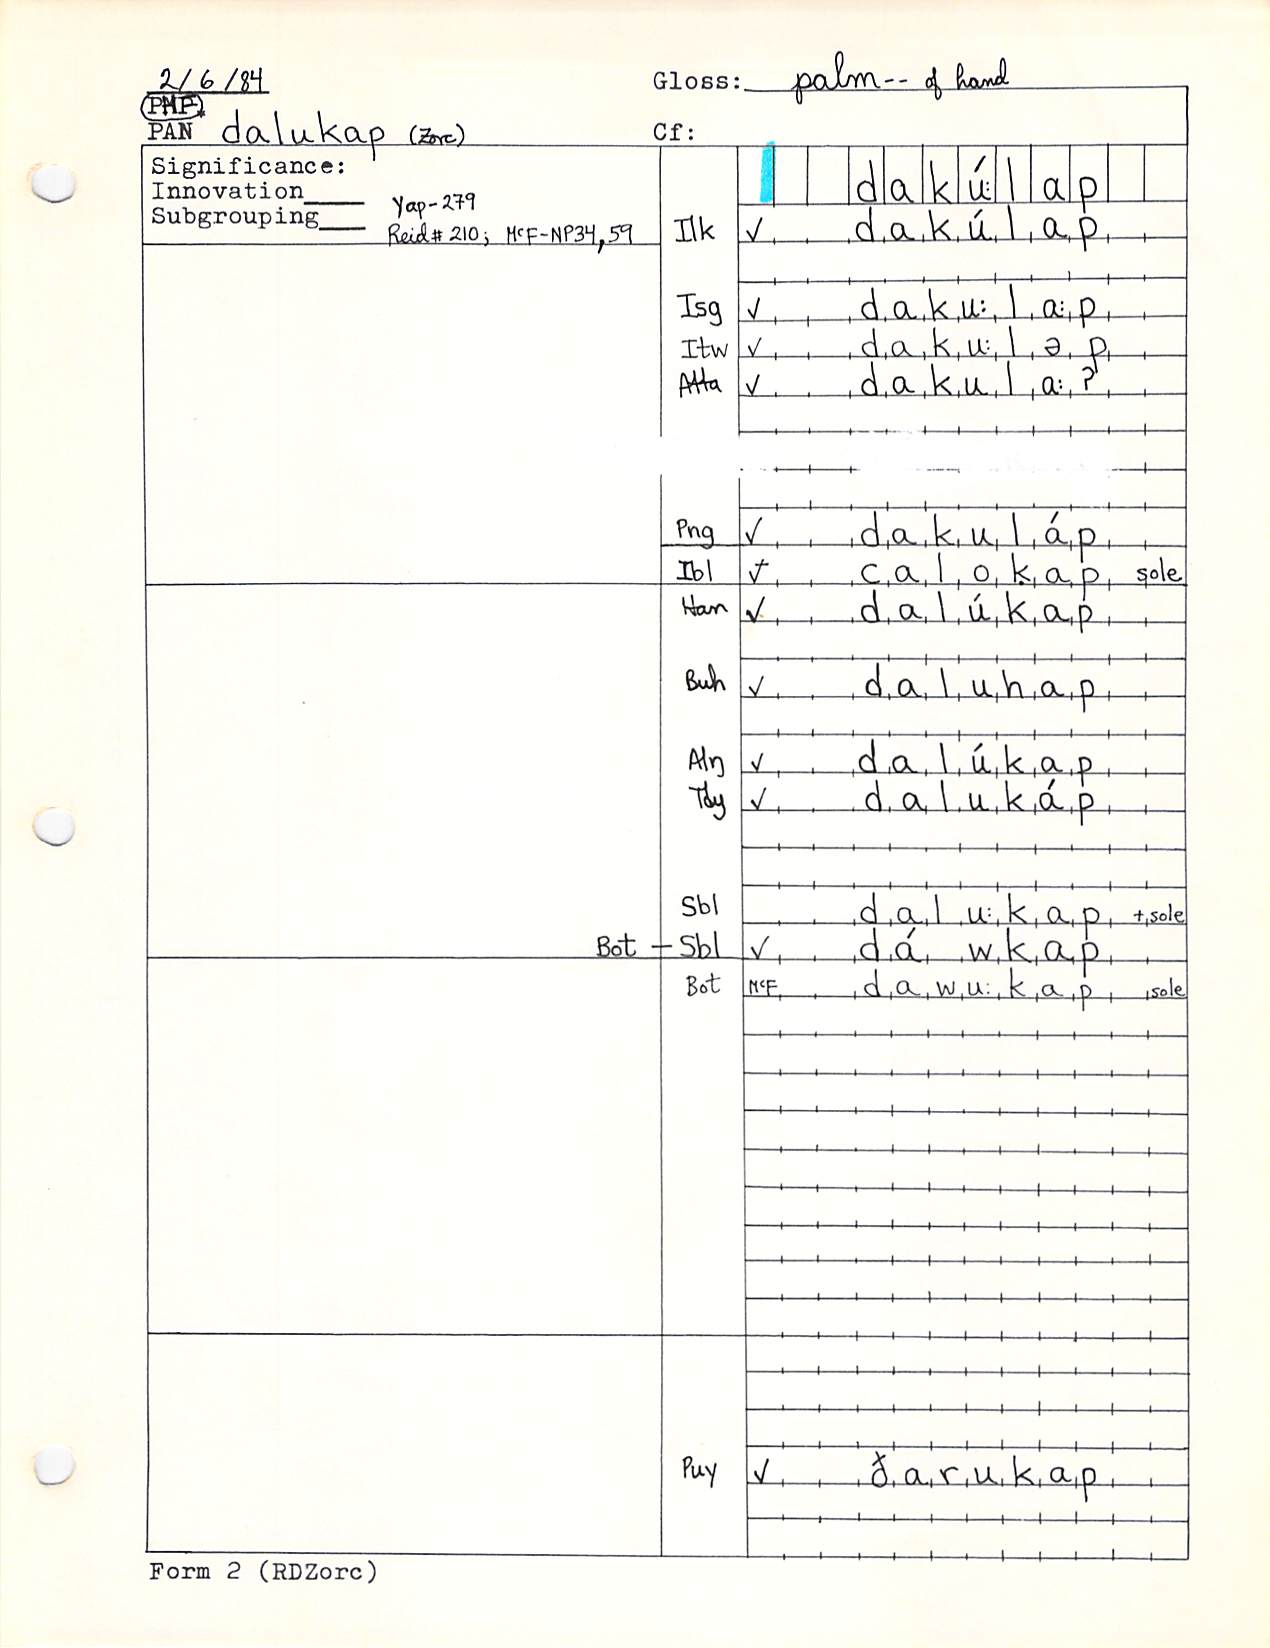 2/6/84
Gloss: palm-- of hand
PMP
PAN *dalukap (Zorc)
Cf:
Significance:
Innovation____
Subgrouping____
Yap-279
Reid# 210; McF-NP34,59
dakú:lap
Ilk ✓ dakúlap
Isg ✓ daku:la:p
Itw ✓ daku:ləp
Atta ✓ dakula:ʔ
Png ✓ dakuláp
Ibl ✓ calokap sole
Han ✓ dalúkap
Buh ✓ daluhap
Alŋ ✓ dalúkap
Tdy ✓ dalukáp
Sbl dalu:kap +sole
Bot — Sbl ✓ dá wkap
Bot McF dawu:kap sole
Puy ✓ ðarukap
Form 2 (RDZorc)